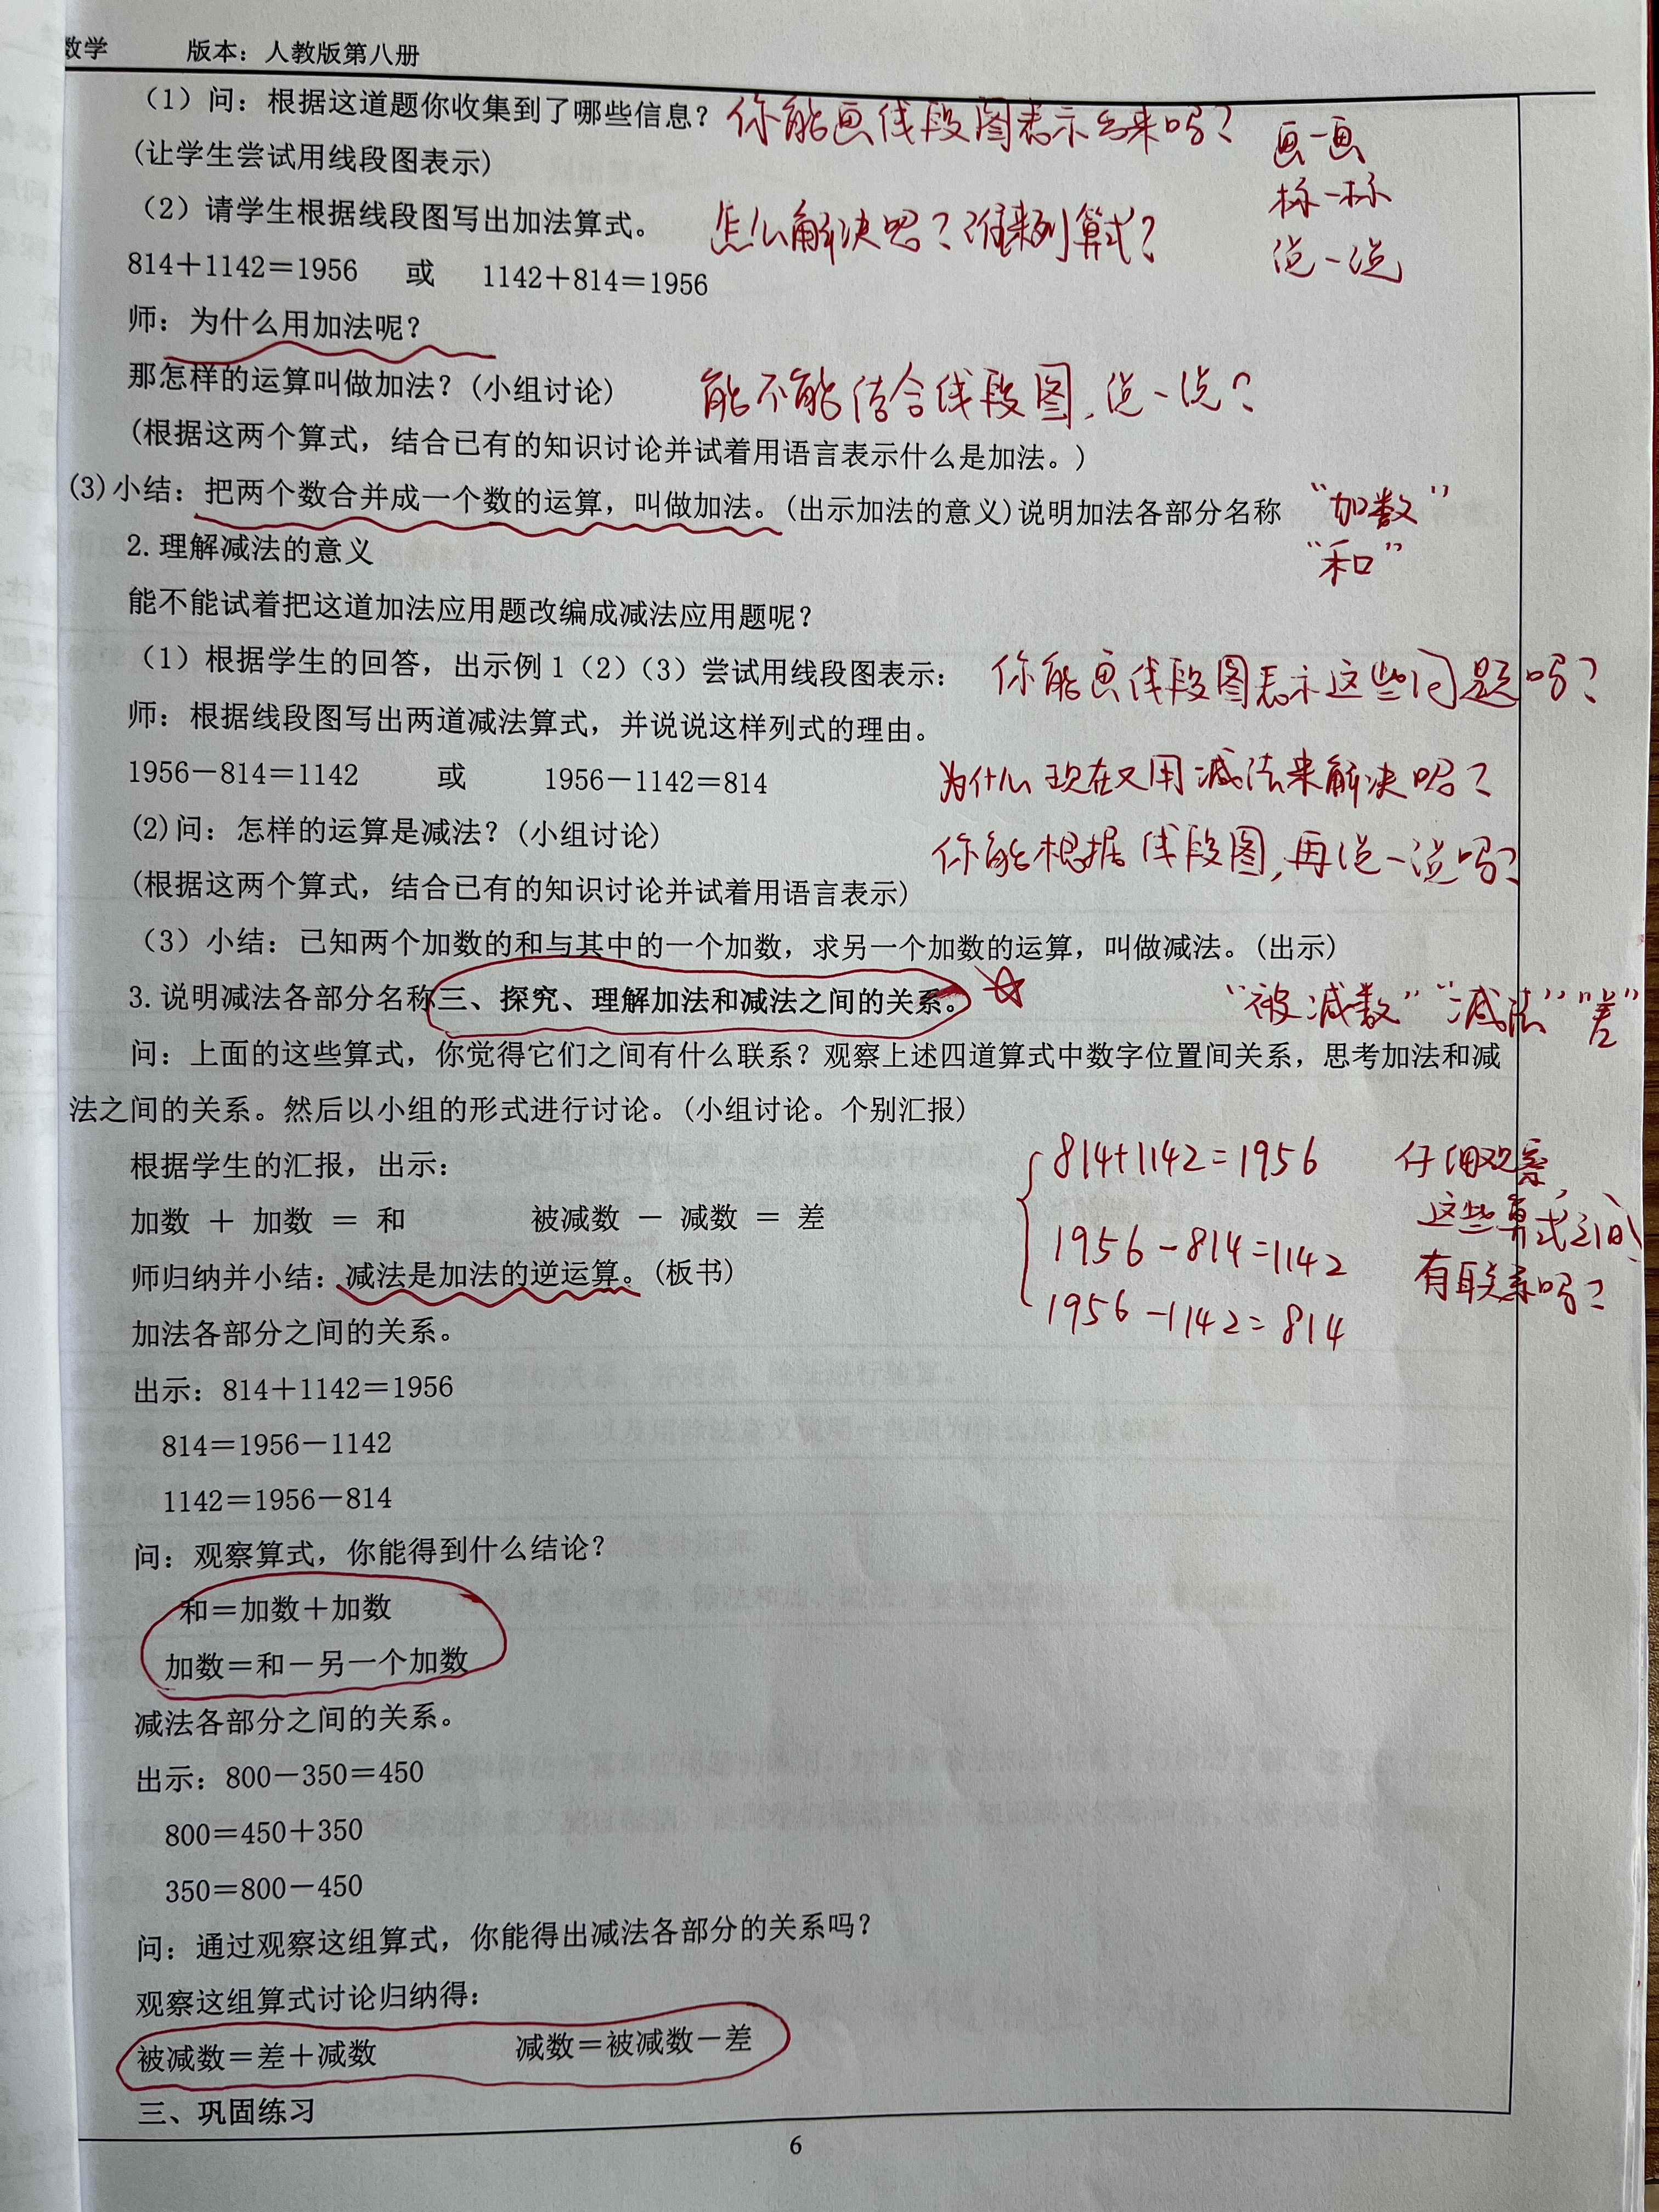 数学 版本：人教版第八册
（1）问：根据这道题你收集到了哪些信息？ 你能画线段图表示出来吗？
画一画
(让学生尝试用线段图表示)
标一标
（2）请学生根据线段图写出加法算式。 怎么解决呢？谁来列算式？
说一说
814＋1142＝1956 或 1142＋814＝1956
师：为什么用加法呢？
那怎样的运算叫做加法？(小组讨论) 能不能结合线段图，说一说？
(根据这两个算式，结合已有的知识讨论并试着用语言表示什么是加法。)
(3)小结：把两个数合并成一个数的运算，叫做加法。(出示加法的意义)说明加法各部分名称 “加数”
2.理解减法的意义 “和”
能不能试着把这道加法应用题改编成减法应用题呢？
（1）根据学生的回答，出示例1（2）（3）尝试用线段图表示： 你能画线段图表示这些问题吗？
师：根据线段图写出两道减法算式，并说说这样列式的理由。
1956－814＝1142 或 1956－1142＝814 为什么现在又用减法来解决呢？
(2)问：怎样的运算是减法？(小组讨论) 你能根据线段图，再说一说吗？
(根据这两个算式，结合已有的知识讨论并试着用语言表示)
（3）小结：已知两个加数的和与其中的一个加数，求另一个加数的运算，叫做减法。(出示)
3.说明减法各部分名称三、探究、理解加法和减法之间的关系。 “被减数”“减法”“差”
问：上面的这些算式，你觉得它们之间有什么联系？观察上述四道算式中数字位置间关系，思考加法和减
法之间的关系。然后以小组的形式进行讨论。(小组讨论。个别汇报)
根据学生的汇报，出示： 814+1142=1956 仔细观察，
加数 ＋ 加数 ＝ 和 被减数 － 减数 ＝ 差 1956-814=1142 这些算式之间
师归纳并小结：减法是加法的逆运算。(板书) 1956-1142=814 有联系吗？
加法各部分之间的关系。
出示：814＋1142＝1956
814＝1956－1142
1142＝1956－814
问：观察算式，你能得到什么结论？
和＝加数＋加数
加数＝和－另一个加数
减法各部分之间的关系。
出示：800－350＝450
800＝450＋350
350＝800－450
问：通过观察这组算式，你能得出减法各部分的关系吗？
观察这组算式讨论归纳得：
被减数＝差＋减数 减数＝被减数－差
三、巩固练习
6